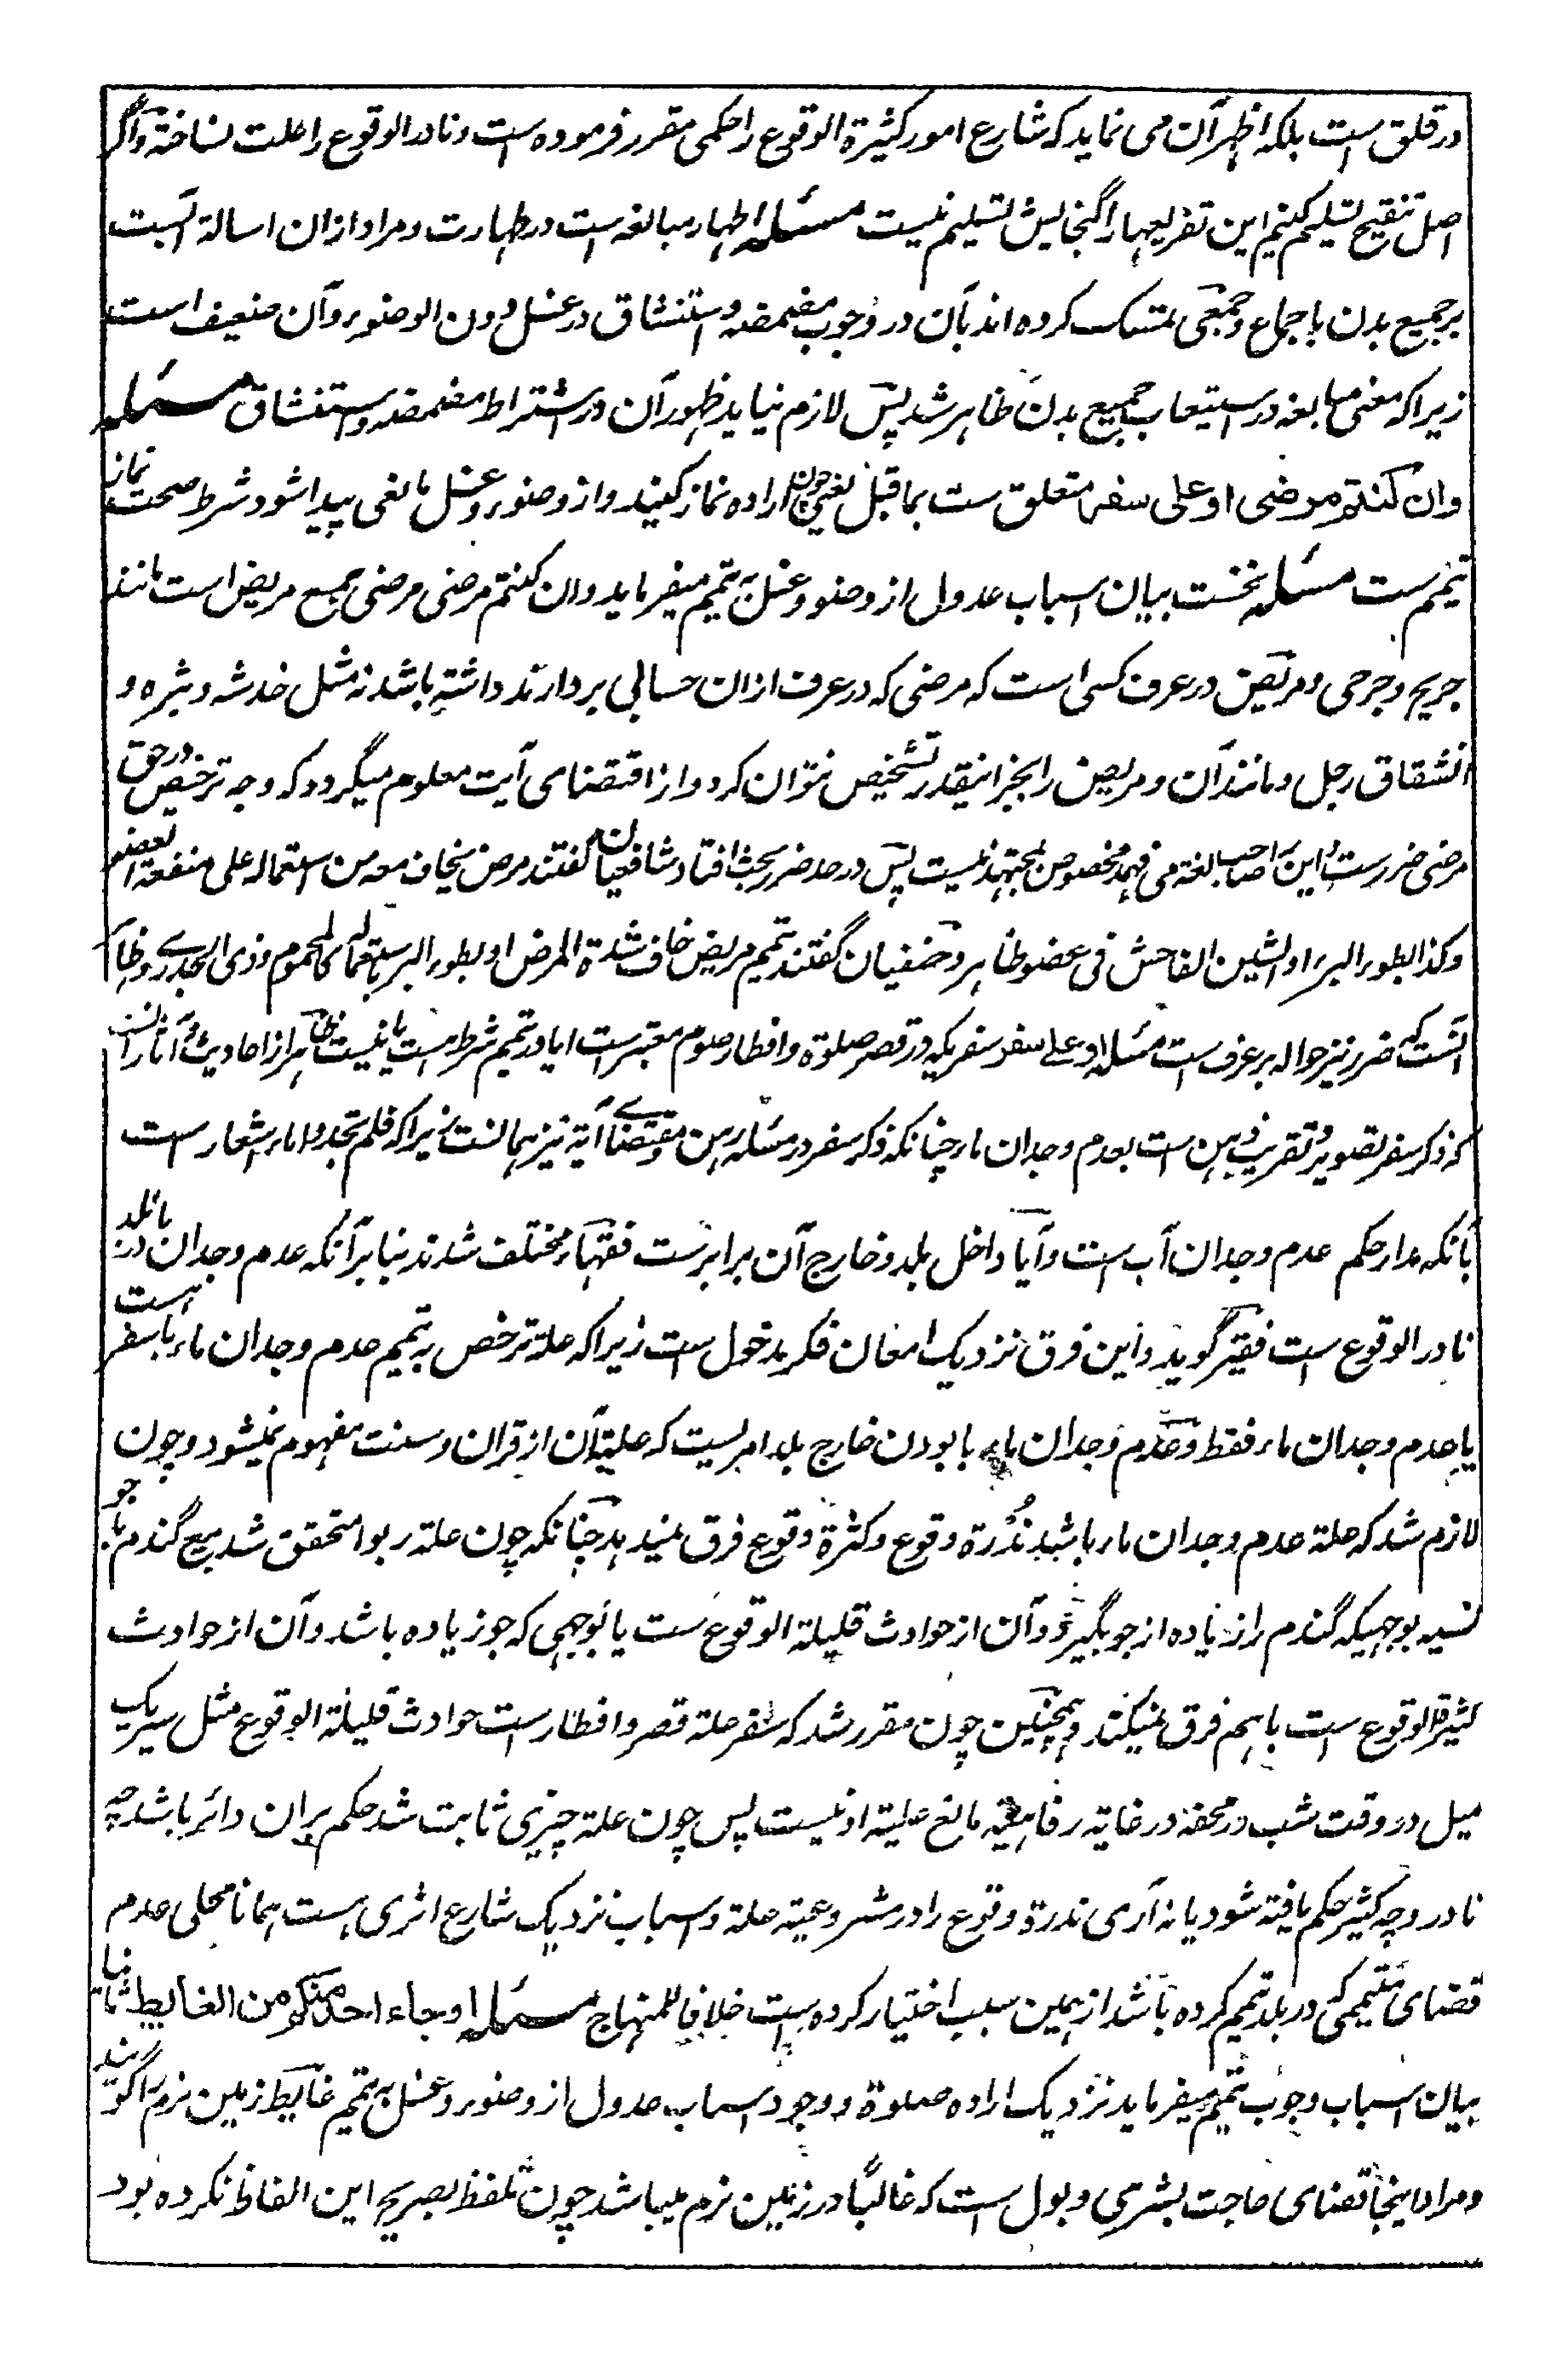 در قلق است بلکه اظهر آن می نماید که شارع امور کثیرة الوقوع را حکمی مقرر فرموده است و نادر الوقوع را علت نساخته و اگر
اصل تنقیح تسلیم کنیم این تفریعها را گنجایش تسلیم نیست مسئله اطهار مبالغه است در طهارت و مراد ازان اسالة آبست
بر جمیع بدن باجماع و جمعی تمسک کرده اند بآن در وجوب مضمضه و استنشاق در غسل دون الوضوء و آن ضعیف است
زیرا که معنی مبالغه در استیعاب جمیع بدن ظاهر شد پس لازم نیاید ظهور آن در اشتراط مضمضه و استنشاق مسئله
وان کنتم مرضی او علی سفر متعلق ست بما قبل یعنی چون اراده نماز کنید و از وضوء و غسل مانعی پیدا شود شرط صحت نماز
تیمم ست مسئله نخست بیان اسباب عدول از وضو و غسل به تیمم میفرماید وان کنتم مرضی مرضی جمع مریض است مانند
جریح و جرحی و مریض در عرف کسی است که مرضی که در عرف ازان حسابی بردارند داشته باشد نه مثل خدشه و بثره و
انشقاق رجل و مانند آن و مریض را بجز اینقدر تشخیص نتوان کرد و از اقتضای آیت معلوم میگردد که وجه ترخیص در حق
مرضی ضررست و این را صاحب لغة می فهمد مخصوص بمجتهد نیست پس در حد ضرر بحث افتاد شافعیان گفتند مرض یخاف معه من استعماله علی منفعة العضو
وکذا بطوء البرء او الشین الفاحش فی عضو ظاهر و حنفیان گفتند تیمم مریض خاف شدة المرض او بطوء البرء باستعماله کالمحموم و ذی الجدری و ظاهر
آنست که ضرر نیز حواله بر عرف ست مسئله او علی سفر سفریکه در قصر صلوة و افطار صوم معتبر ست ایا در تیمم شرط ست یا نیست ظاهر از احادیث و آثار آنست
که ذکر سفر تصویر و تقریب ذهن ست بعدم وجدان ماء چنانکه ذکر سفر در مسئله رهن و مقتضای آیة نیز همانست زیرا که فلم تجدوا ماء اشعار ست
بآنکه مدار حکم عدم وجدان آب ست و آیا داخل بلد و خارج آن برابرست فقهاء مختلف شدند بنابر آنکه عدم وجدان ماء در بلد
نادر الوقوع ست فقیر گوید و این فرق نزدیک امعان فکر مدخول ست زیرا که علة ترخص به تیمم عدم وجدان ماء با سفر است
یا عدم وجدان ماء فقط و عدم وجدان ماء با بودن خارج بلد امریست که علیة آن از قران و سنت مفهوم نمیشود و چون
لازم شد که علة عدم وجدان ماء باشد ندرة وقوع و کثرة وقوع فرق نمیدهد چنانکه چون علة ربوا متحقق شد بیع گندم با جو
نسیه بوجهیکه گندم را زیاده از جو بگیرد و آن از حوادث قلیلة الوقوع ست یا بوجهی که جو زیاده باشد و آن از حوادث
کثیرة الوقوع ست باهم فرق نمیکند و همچنین چون مقرر شد که سفر علة قصر و افطار ست حوادث قلیلة الوقوع مثل سیر یک
میل در وقت شب در محفه در غایة رفاهیة مانع علیة او نیست پس چون علة چیزی ثابت شد حکم بران دائر باشد چه
نادر و چه کثیر حکم یافته شود یا نه آری ندرة وقوع را در مشروعیة علة و اسباب نزدیک شارع اثری هست همانا محلی عدم
قضای متیممی که در بلد تیمم کرده باشد از همین سبب اختیار کرده است خلافا للمنهاج مسئله او جاء احد منکم من الغایط ثانیا
بیان اسباب وجوب تیمم میفرماید نزدیک اراده صلوة و وجود اسباب عدول از وضوء و غسل به تیمم غایط زمین نرم را گویند
و مراد اینجا قضای حاجت بشری و بول ست که غالبًا در زمین نرم میباشد چون تلفظ بصریح این الفاظ نکرده بود